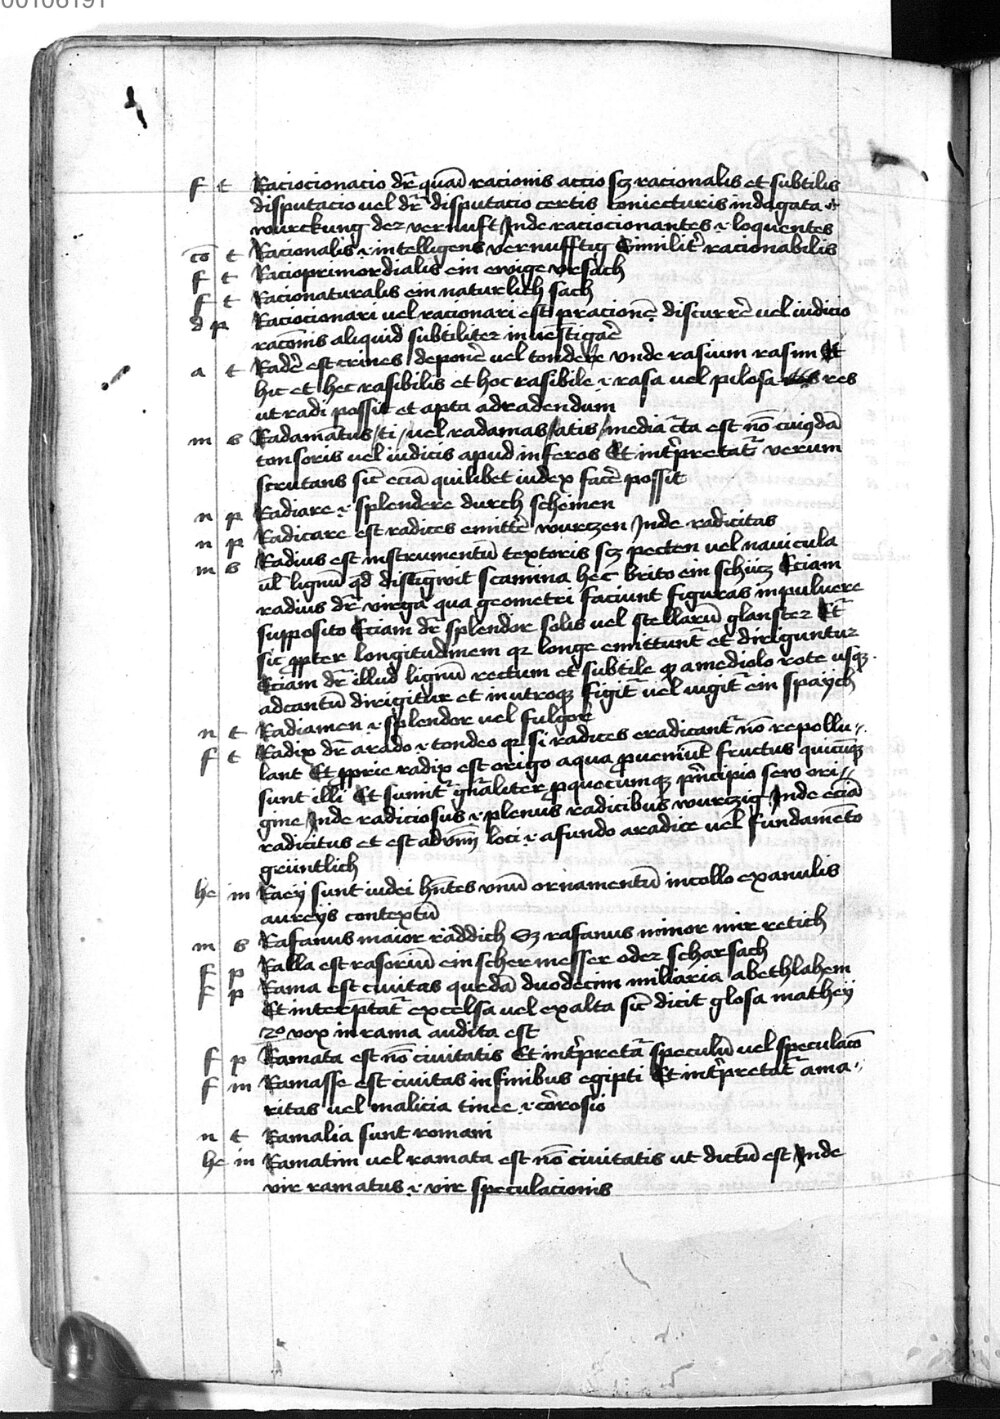 00106191
f t Raciocionacio dr̄ quasi racionis accio scz racionalis et subtilis
disputacio vel dr̄ disputacio certis coniecturis indagata
wurckung der vernuft Inde raciocionantes i. loquentes
cō t Racionalis i. intelligens vernufftig Similit̄ racionabilis
f t Racioprimordialis ein ewige vrsach
f t Racionaturalis ein naturlich sach
d p Raciocionari vel racionari est p racionē discurrē vel iudicio
racōnis aliquid subtiliter inuestigaē
a t Radē est crines deponē vel tondere vnde rasium rasim Et
hic et hec rasibilis et hoc rasibile i. rasa vel pilosa res
ut radi possit et apta adradendum
m s Radamatus ti vel radamas atis media c̄ta est nō cuiusdā
tonsoris vel iudicis apud inferos Et int̄pretat̄ verum
scrutans sic̄ eciā quilibet iudex facē possit
n p Radiare i. splendere durch scheinen
n p Radicare est radices emittē wurtzen Inde radicitas
m s Radius est instrumentū textoris scz pecten vel nauicula
ul̄ lignū qd̄ distīgwit stamina hec brito ein schücz Eciam
radius dr̄ virga qua geometri faciunt figuras in puluere
supposito Eciam dr̄ splendor solis vel stellarū glanster Et
sic ꝓpter longitudinem qz longe emittunt̄ et diriguntur
Eciam dr̄ illud lignū rectum et subtile qd̄ amediolo rote usqz
adcantū dirigitur et inutroqz figit̄ vel iugit̄ ein spaych
n t Radiamen i. splendor vel fulgor
f t Radix dr̄ arado i. tondeo qz si radices eradicant̄ nō repollu-
lant Et ꝓprie radix est origo aqua ꝓueniūt fructus quicūqz
sunt illi Et sumit̄ gn̄aliter ꝓquecumqz p̄ncipio seu ori-
gine Inde radiciosus i. plenus radicibus wurczig Inde eciā
radicitus et est adv̄m loci i. afundo aradice vel fundamēto
grüntlich
he m Racij sunt iudei hn̄tes vnū ornamentū incollo exanulis
aureijs contextū
m s Rafanus maior räddich Sz rafanus minor mir retich
f p Ralla est rasoriū ein scher messer oder scharsach
f p Rama est ciuitas quedā duodecim miliaria abethlahem
Et interp̄tat̄ excelsa vel exalta sic̄ dicit glosa mathey
2º vox in rama audita est
f p Ramata est nō ciuitatis Et int̄pretat̄ speculū vel speculacō
f m Ramasse est ciuitas in finibus egipti Et int̄pretat̄ ama-
ritas vel malicia tinee i. cōrosio
n t Ramalia sunt romani
he m Ramatim vel ramata est nō ciuitatis ut dictū est Inde
vir ramatus i. vir speculacionis